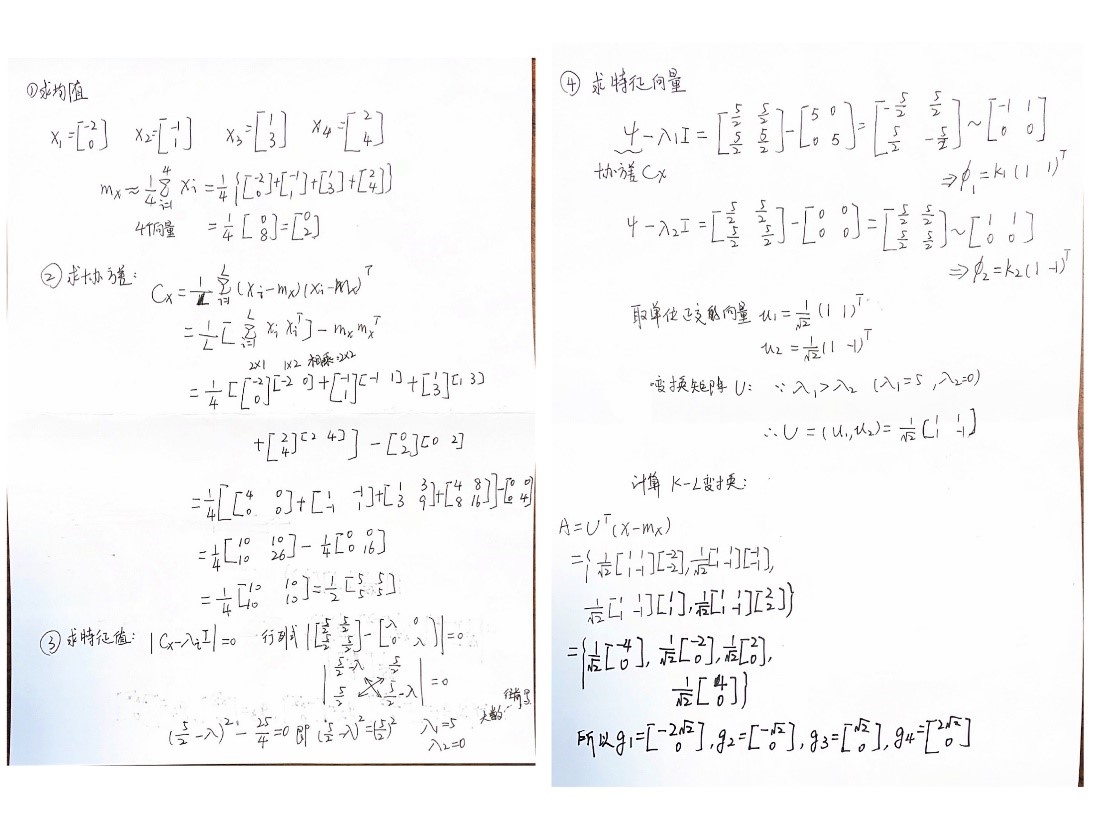 ①求均值
X₁=[-2 0] X₂=[-1 1] X₃=[1 3] X₄=[2 4]
mx≈1/4 ∑(i=1→4) Xi = 1/4{[-2 0]+[-1 1]+[1 3]+[2 4]}
4个向量 =1/4[0 8]=[0 2]
②求协方差:
Cx=1/L ∑(i=1→L) (Xi-mx)(Xi-mx)ᵀ
=1/L[∑(i=1→L) Xi Xiᵀ]-mx mxᵀ
2×1 1×2 相乘:2×2
=1/4[[-2 0][-2 0]+[-1 1][-1 1]+[1 3][1 3]
+[2 4][2 4]]-[0 2][0 2]
=1/4[[4 0; 0 0]+[1 -1; -1 1]+[1 3; 3 9]+[4 8; 8 16]]-[0 0; 0 4]
=1/4[10 10; 10 26]-1/4[0 0; 0 16]
=1/4[10 10; 10 10]=1/2[5 5; 5 5]
③求特征值: |Cx-λiI|=0 行列式 |[5/2 5/2; 5/2 5/2]-[λ 0; 0 λ]|=0
|5/2-λ 5/2; 5/2 5/2-λ|=0
(5/2-λ)²-25/4=0 即 (5/2-λ)²=(5/2)² λ₁=5
λ₂=0
大数
④ 求特征向量
Ψ-λ₁I=[5/2 5/2; 5/2 5/2]-[5 0; 0 5]=[-5/2 5/2; 5/2 -5/2]~[-1 1; 0 0]
协方差Cx ⇒ϕ₁=k₁(1 1)ᵀ
Ψ-λ₂I=[5/2 5/2; 5/2 5/2]-[0 0; 0 0]=[5/2 5/2; 5/2 5/2]~[1 1; 0 0]
⇒ϕ₂=k₂(1 -1)ᵀ
取单位正交的向量 u₁=1/√2(1 1)ᵀ
u₂=1/√2(1 -1)ᵀ
变换矩阵U: ∵λ₁>λ₂ (λ₁=5,λ₂=0)
∴U=(u₁,u₂)=1/√2[1 1; 1 -1]
计算 K-L变换:
A=Uᵀ(X-mx)
={1/√2[1 1; 1 -1][-2 -2], 1/√2[1 1; 1 -1][-1 -1],
1/√2[1 1; 1 -1][1 1], 1/√2[1 1; 1 -1][2 2]}
={1/√2[-4 0], 1/√2[-2 0], 1/√2[2 0],
1/√2[4 0]}
所以g₁=[-2√2 0], g₂=[-√2 0], g₃=[√2 0], g₄=[2√2 0]